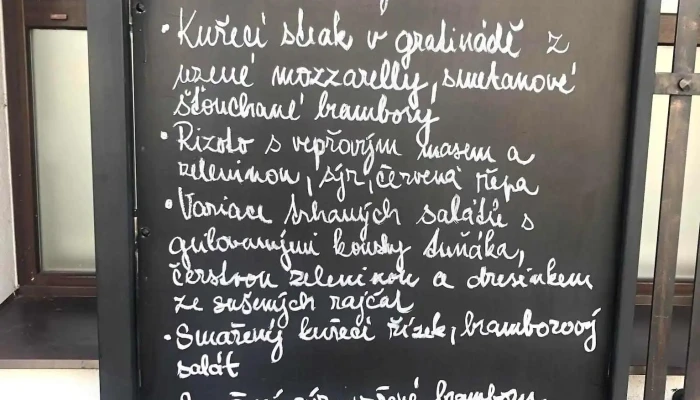 • Kuřecí steak v gratinádě z
uzené mozzarelly, smetanové
šťouchané brambory
• Rizoto s vepřovým masem a
zeleninou, sýr, červená řepa
• Variace trhaných salátů s
grilovanými kousky tuňáka,
čerstvou zeleninou a dresinkem
ze sušených rajčat
• Smažený kuřecí řízek, bramborový
salát
sýr, vařené brambory